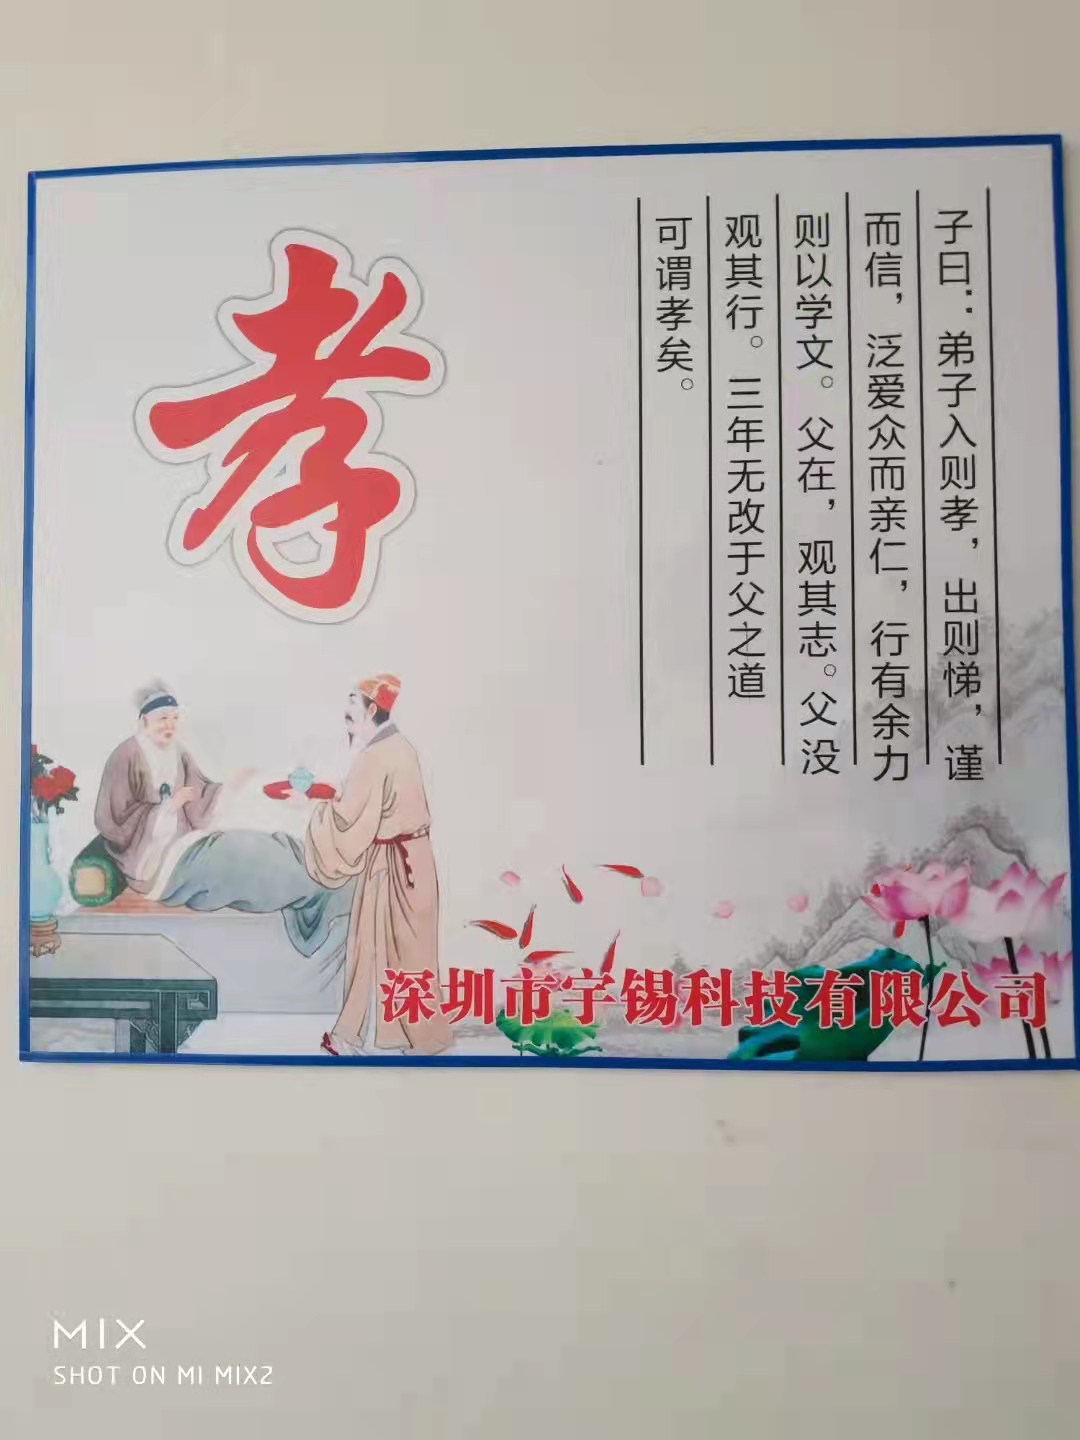 孝
子曰：弟子入则孝，出则悌，谨
而信，泛爱众而亲仁，行有余力
则以学文。父在，观其志。父没
观其行。三年无改于父之道
可谓孝矣。
深圳市宇锡科技有限公司
MIX
SHOT ON MI MIX2